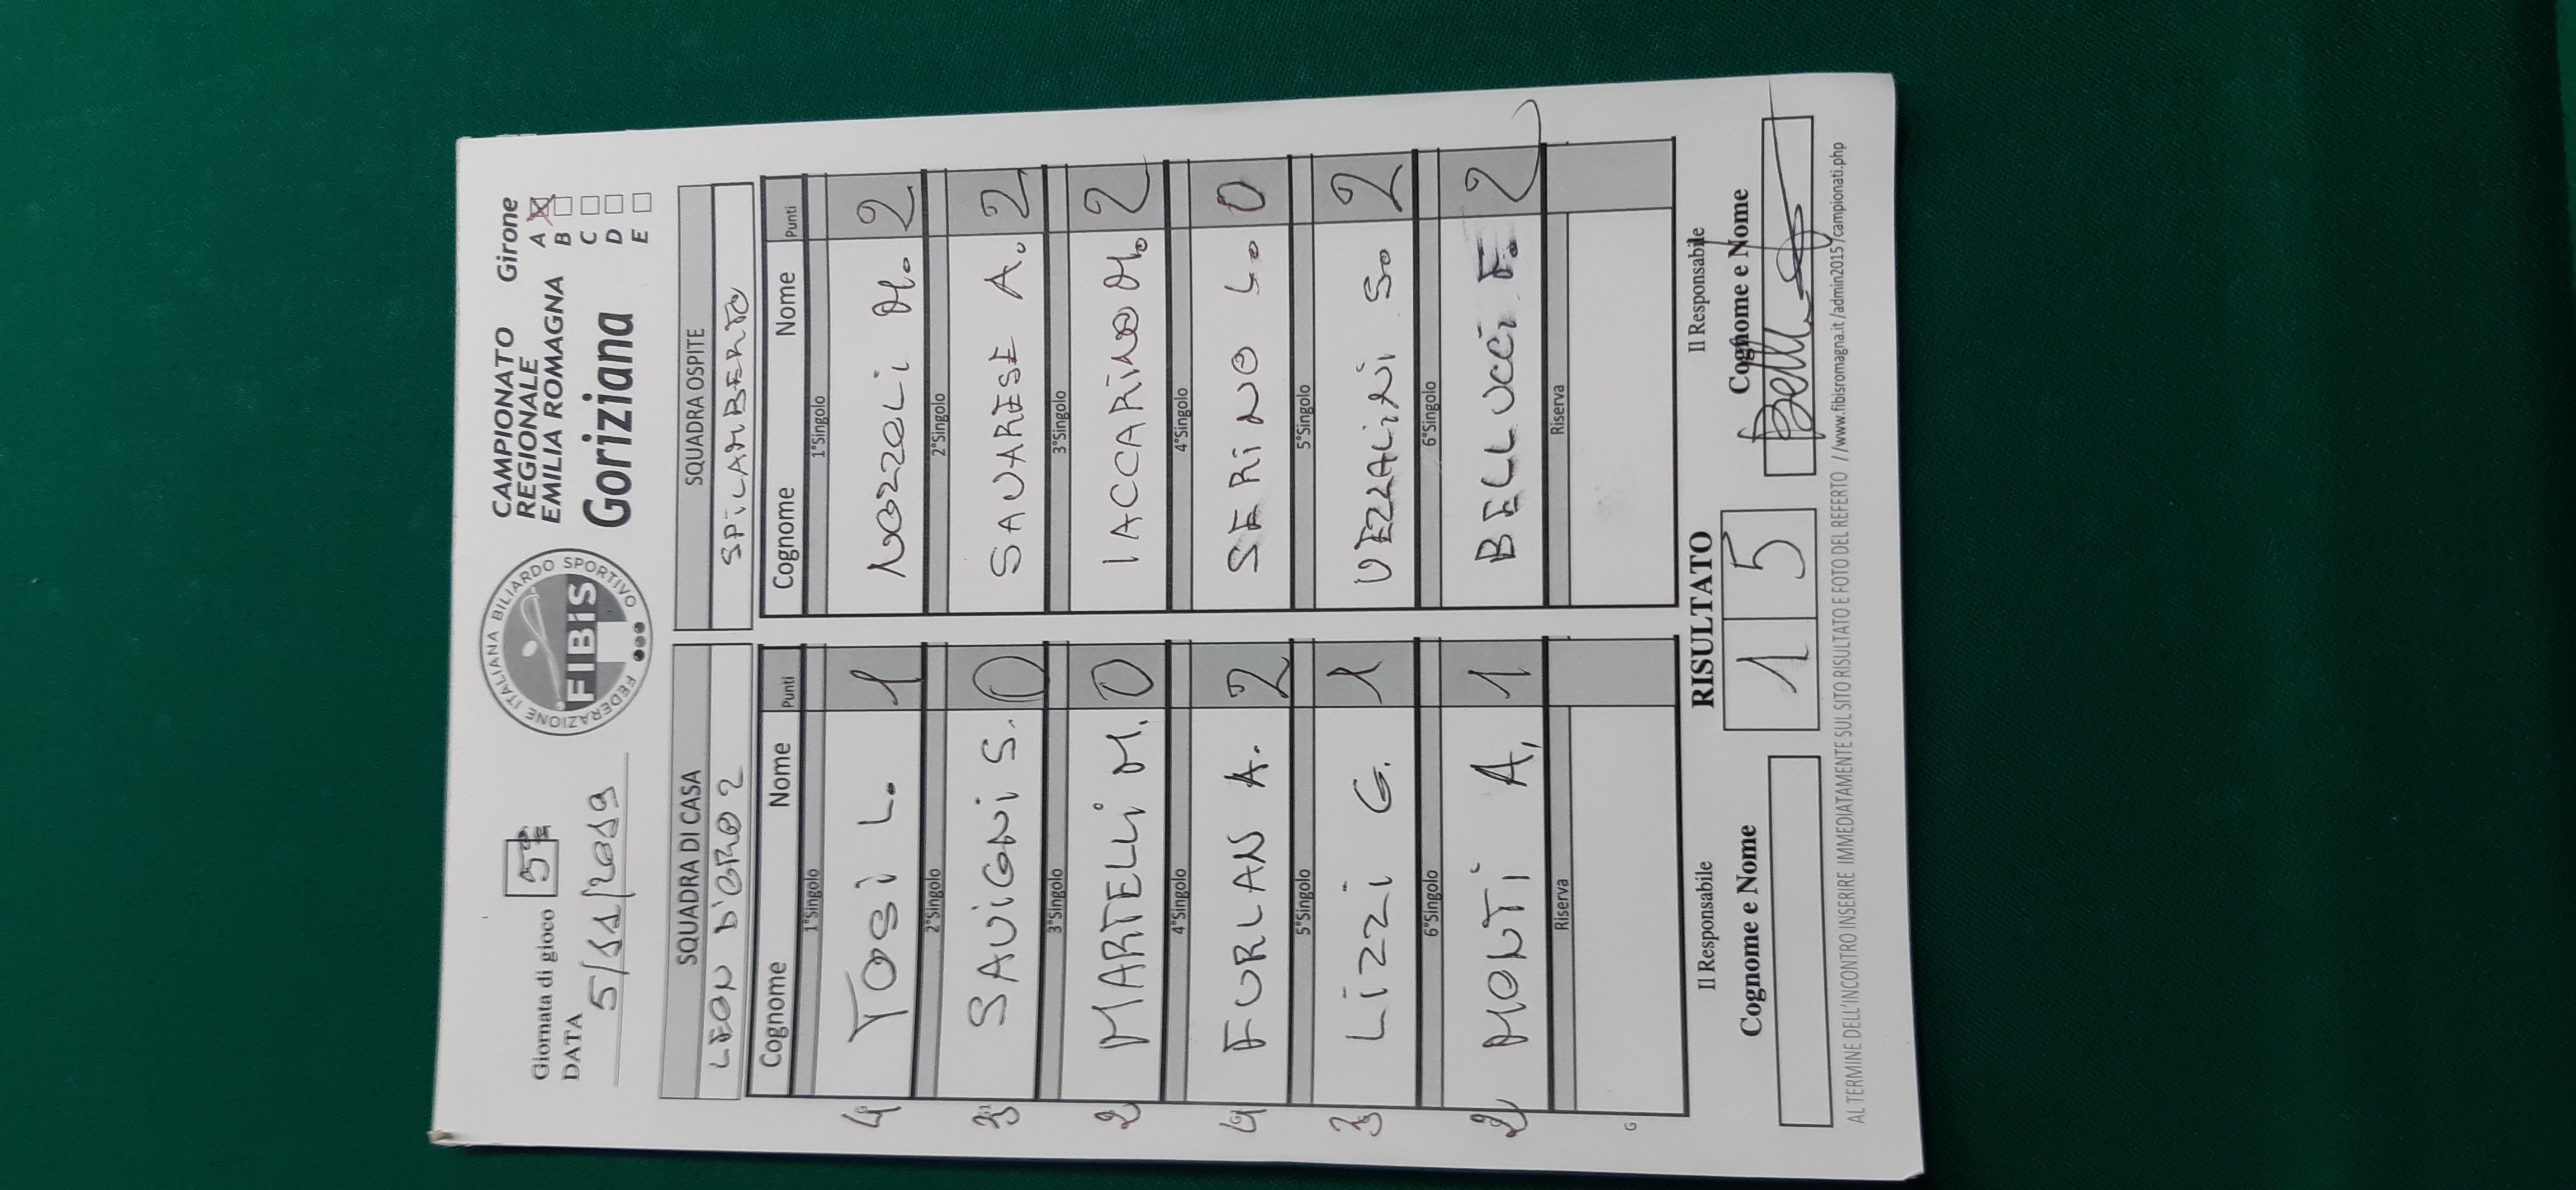 Giornata di gioco 5ª
DATA
5/11/2019
FEDERAZIONE ITALIANA BILIARDO SPORTIVO
FIBIS
CAMPIONATO
REGIONALE
EMILIA ROMAGNA
Goriziana
Girone
A
B
C
D
E
SQUADRA DI CASA
LEON D'ORO 2
Cognome Nome Punti
1°Singolo
4 TOSI L. 1
2°Singolo
3 SAVIGNI S. 0
3°Singolo
2 MARTELLI M. 0
4°Singolo
4 FURLAN A. 2
5°Singolo
3 LIZZI G. 1
6°Singolo
2 MONTI A. 1
Riserva
G
SQUADRA OSPITE
SPILAMBERTO
Cognome Nome Punti
1°Singolo
NOZZOLI M. 2
2°Singolo
SAVARESE A. 2
3°Singolo
IACCARINO M. 2
4°Singolo
SERINO L. 0
5°Singolo
VEZZALINI S. 2
6°Singolo
BELLUCCI F. 2
Riserva
Il Responsabile
Cognome e Nome
RISULTATO
1 5
Il Responsabile
Cognome e Nome
AL TERMINE DELL'INCONTRO INSERIRE IMMEDIATAMENTE SUL SITO RISULTATO E FOTO DEL REFERTO //www.fibisromagna.it/admin2015/campionati.php